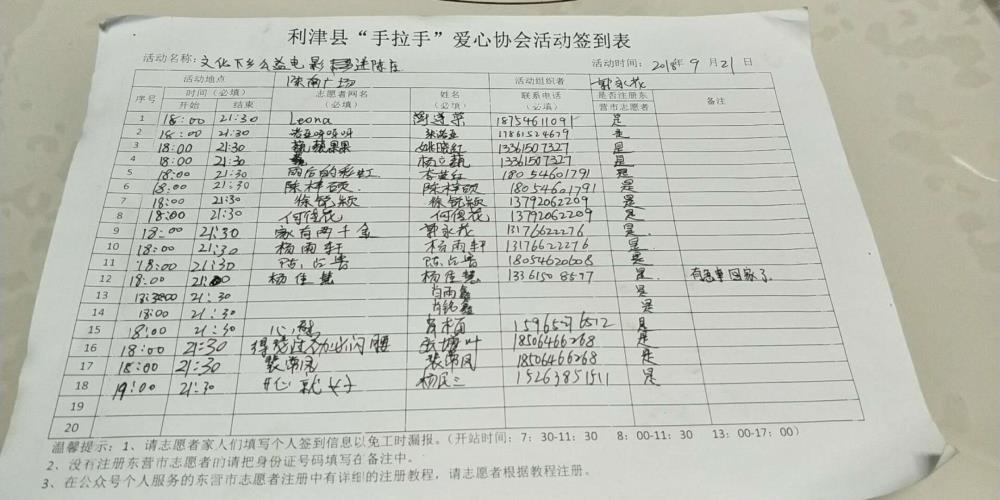 利津县“手拉手”爱心协会活动签到表
活动名称: 文化下乡公益电影 进陈庄 活动时间: 2018年 9 月 21 日
活动地点 陈南广场 活动组织者 郭永花
序号 时间（必填） 志愿者网名 姓名 联系电话 是否注册东 备注
开始 结束 （必填） （必填） （必填） 营市志愿者
1 18:00 21:30 Leona 18754611091 是
2 18:00 21:30 17861524679 是
3 18:00 21:30 蘋果果 姚晓红 13361507327 是
4 18:00 21:30 杨立 13361507327 是
5 18:00 21:30 雨后的彩虹 李 红 18054601791 是
6 18:00 21:30 陈梓硕 陈梓硕 18054601791 是
7 18:00 21:30 徐 颖 徐 颖 13792062209 是
8 18:00 21:30 何佳花 何佳花 13792062209 是
9 18:00 21:30 家有两千金 郭永花 13176622276 是
10 18:00 21:30 杨雨轩 杨雨轩 13176622276 是
11 18:00 21:30 陈 陈 18054620608 是
12 18:00 21: 杨佳慧 杨佳慧 1336150 是 有急事回家了
13 21:30 肖雨鑫 是
14 18:00 21:30 肖铭鑫 是
15 18:00 21:30 心 是
16 18:00 21:30 得 闪腰 叶 18506466268 是
17 18:00 21:30 裴常风 裴常风 18506466268 是
18 19:00 21:30 开心就好 杨民三 15263851511 是
19
20
温馨提示: 1、请志愿者家人们填写个人签到信息以免工时漏报。(开站时间: 7: 30-11: 30 8: 00-11: 30 13: 00-17: 00)
2、没有注册东营市志愿者的请把身份证号码填写在备注中。
3、在公众号个人服务的东营市志愿者注册中有详细的注册教程，请志愿者根据教程注册。